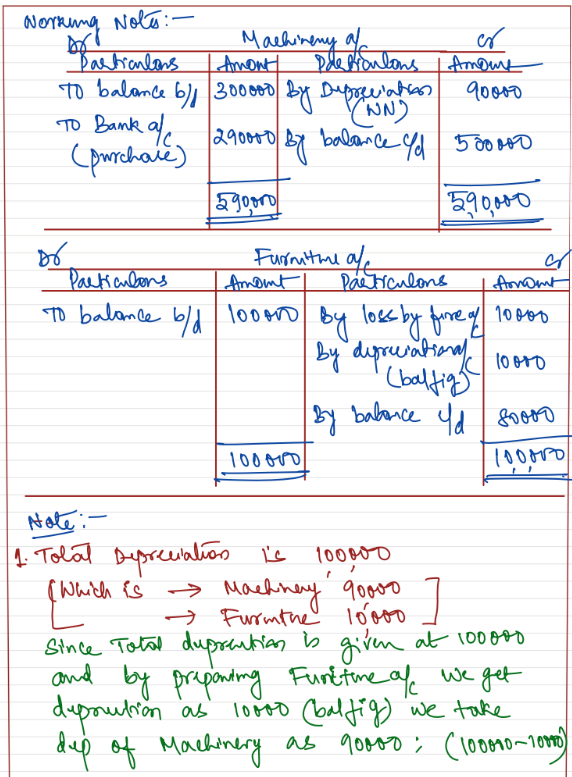 Working Notes:-
Dr Machinery a/c Cr
Particulars Amount Particulars Amount
To balance b/d 300000 By Depreciation (NN) 90000
To Bank a/c (purchase) 290000 By balance c/d 500000
590,000 590,000
Dr Furniture a/c Cr
Particulars Amount Particulars Amount
To balance b/d 100000 By loss by fire a/c 10000
By depreciation a/c (balfig) 10000
By balance c/d 80000
100000 100,000
Note:-
1. Total Depreciation is 100,000
[Which is → Machinery 90000
→ Furniture 10,000]
Since Total depreciation is given at 100000
and by preparing Furniture a/c we get
depreciation as 10000 (balfig) we take
dep of Machinery as 90000; (100000-10000)